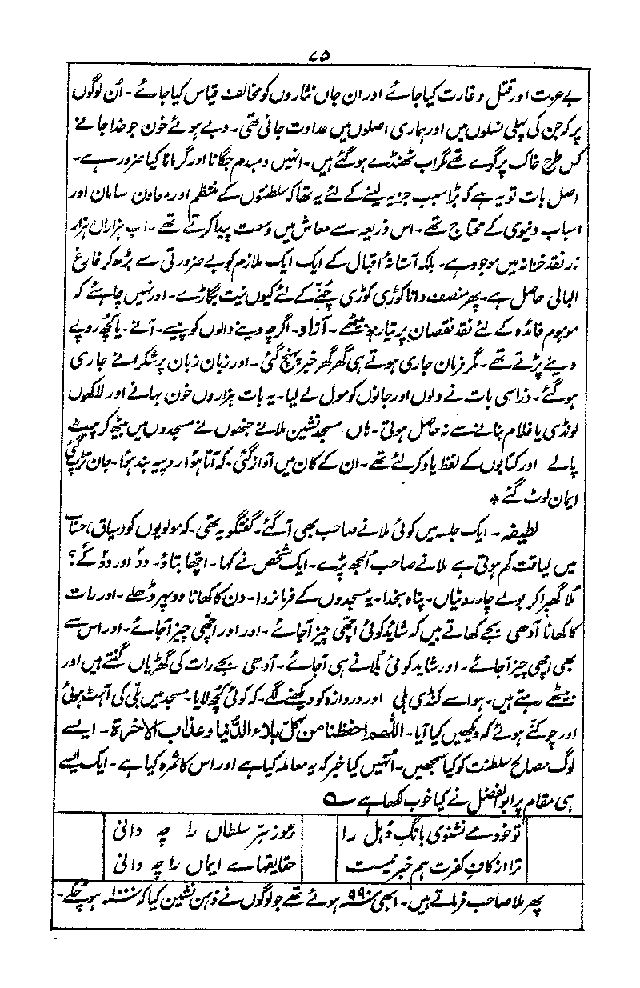 ۷۵
بے عزت اور قتل و غارت کیا جائے اور ان جاں نثاروں کو مخالف قیاس کیا جائے۔ اُن لوگوں
پر کہ جن کی پہلی نسلوں میں اور ہماری اصلوں میں عداوت جانی تھی۔ دبے ہوئے خون جو خدا جانے
کس طرح خاک پر گرے تھے گو اب ٹھنڈے ہو گئے ہیں۔ انہیں دمبدم جگانا اور گرمانا کیا ضرور ہے۔
اصل بات تو یہ ہے کہ بڑا سبب جزیہ لینے کے لئے یہ تھا کہ سلطنتوں کے منتظم اور معاون سامان اور
اسباب دنیوی کے محتاج تھے۔ اس ذریعہ سے معاش میں وسعت پیدا کرتے تھے۔ اب ہزاراں ہزار
زر نقد خزانہ میں موجود ہے۔ بلکہ آستانۂ اقبال کے ایک ایک ملازم کو بے ضرورتی سے بڑھ کر فارغ
البالی حاصل ہے۔ پھر منصف دانا کوڑی کوڑی چننے کے لئے کیوں نیت بگاڑے۔ اور نہیں چاہئے کہ
موہوم فائدہ کے لئے نقد نقصان پر تیار ہو بیٹھے۔ آزاد۔ اگرچہ دینے والوں کو پیسے۔ آنے۔ یا کچھ روپے
دینے پڑتے تھے۔ مگر فرمان جاری ہوتے ہی گھر گھر خبر پہنچ گئی۔ اور زبان زبان پر شکرانے جاری
ہو گئے۔ ذرا سی بات نے دلوں اور جانوں کو مول لے لیا۔ یہ بات ہزاروں خون بہانے اور لاکھوں
لونڈی یا غلام بنانے سے نہ حاصل ہوتی۔ ہاں مسجد نشین ملانے جنھوں نے مسجدوں میں بیٹھ کر پیٹ
پالے اور کتابوں کے لفظ یاد کر لئے تھے۔ ان کے کان میں آواز گئی۔ کہ آتا ہوا روپیہ بند ہوا۔ جان تڑپ گئی
ایمان لوٹ گئے *
لطیفہ۔ ایک جلسہ میں کوئی ملانے صاحب بھی آ گئے۔ گفتگو یہ تھی۔ کہ مولویوں کو سیاق، حساب
میں لیاقت کم ہوتی ہے ملانے صاحب اُلجھ پڑے۔ ایک شخص نے کہا۔ اچھا بتاؤ۔ دو اور دو کے؟
مُلّا گھبرا کر بولے چار روٹیاں۔ پناہ بخدا۔ یہ مسجدوں کے فرمانروا۔ دن کا کھانا دوپہر ڈھلے۔ اور رات
کا کھانا آدھی بجے کھاتے ہیں کہ شاید کوئی اچھی چیز آ جائے۔ اور اور اچھی چیز آ جائے۔ اور اس سے
بھی اچھی چیز آ جائے۔ اور شاید کوئی بلانے ہی آ جائے۔ آدھی بجے رات کی گھڑیاں گنتے ہیں اور
بیٹھے رہتے ہیں۔ ہوا سے کنڈی ہلی اور دروازہ کو دیکھنے لگے۔ کہ کوئی کچھ لایا۔ مسجد میں بلی کی آہٹ ہوئی
اور چوکنے ہوئے کہ دیکھیں کیا آیا۔ اللّٰھم احفظنا من کل بلاء الدنیا وعذاب الآخرۃ۔ ایسے
لوگ مصالح سلطنت کو کیا سمجھیں۔ اُنہیں کیا خبر کہ یہ معاملہ کیا ہے اور اس کا ثمرہ کیا ہے۔ ایک ایسے
ہی مقام پر ابو الفضل نے کیا خوب کہا ہے ؎
تو خود مے نشنوی بانگ دُہل را رموز سِرّ سلطاں را چہ دانی
ترا از کاف کفرت ہم خبر نیست حقایقہائے ایماں را چہ دانی
پھر ملا صاحب فرماتے ہیں۔ ابھی ۹۹۰ھ ہوئے تھے جو لوگوں نے ذہن نشین کیا کہ ۱۰۰۰ھ ہو چکے۔